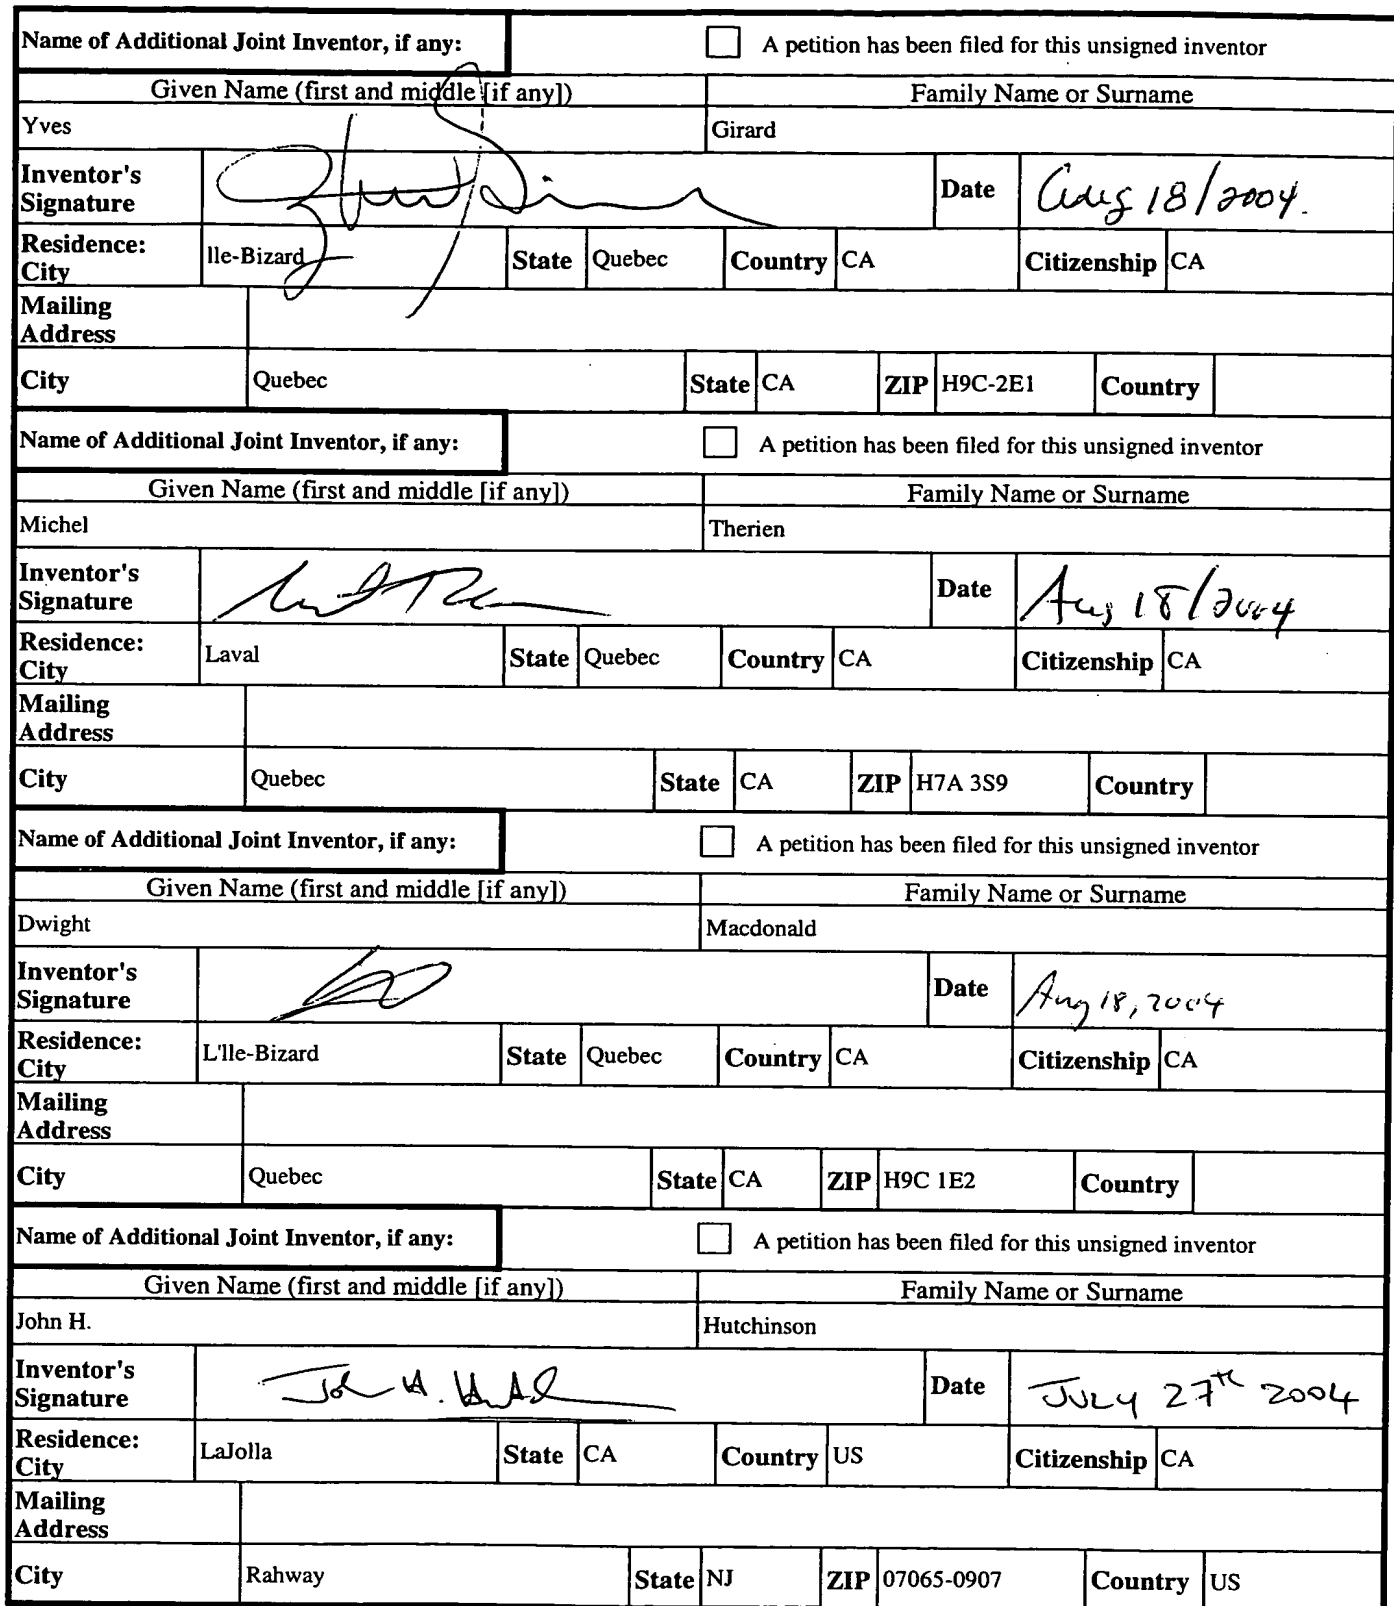 Name of Additional Joint Inventor, if any: A petition has been filed for this unsigned inventor
Given Name (first and middle [if any]) Family Name or Surname
Yves Girard
Inventor's Signature Date Aug 18/2004.
Residence: City Ile-Bizard State Quebec Country CA Citizenship CA
Mailing Address
City Quebec State CA ZIP H9C-2E1 Country
Name of Additional Joint Inventor, if any: A petition has been filed for this unsigned inventor
Given Name (first and middle [if any]) Family Name or Surname
Michel Therien
Inventor's Signature Date Aug 18/2004
Residence: City Laval State Quebec Country CA Citizenship CA
Mailing Address
City Quebec State CA ZIP H7A 3S9 Country
Name of Additional Joint Inventor, if any: A petition has been filed for this unsigned inventor
Given Name (first and middle [if any]) Family Name or Surname
Dwight Macdonald
Inventor's Signature Date Aug 18, 2004
Residence: City L'Ile-Bizard State Quebec Country CA Citizenship CA
Mailing Address
City Quebec State CA ZIP H9C 1E2 Country
Name of Additional Joint Inventor, if any: A petition has been filed for this unsigned inventor
Given Name (first and middle [if any]) Family Name or Surname
John H. Hutchinson
Inventor's Signature Date JULY 27th 2004
Residence: City LaJolla State CA Country US Citizenship CA
Mailing Address
City Rahway State NJ ZIP 07065-0907 Country US